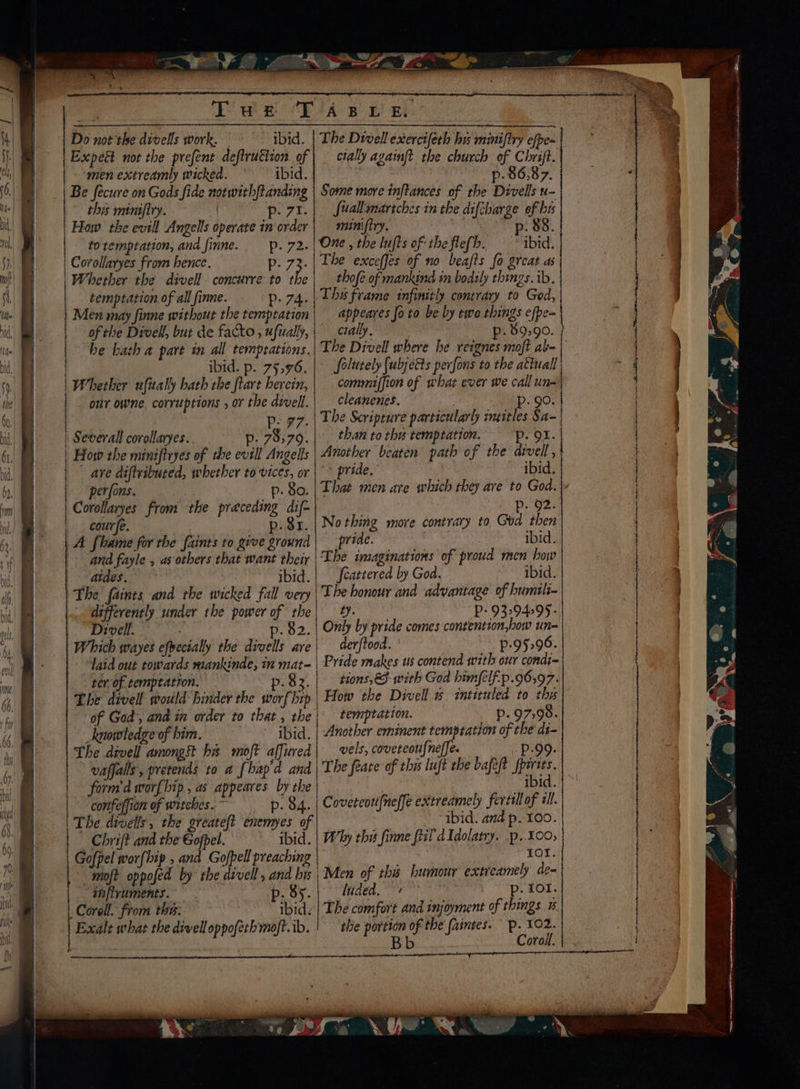 THE TABLE.
Do not the divells work. ibid.
Expect not the present destruction of
men extreamly wicked. ibid.
Be secure on Gods side notwithstanding
this ministry. p. 71.
How the evill Angells operate in order
to temptation, and sinne. p. 72.
Corollaryes from hence. p. 73.
Whether the divell concurre to the
temptation of all sinne. p. 74.
Men may sinne without the temptation
of the Divell, but de facto, usually,
he hath a part in all temptations.
ibid. p. 75,76.
Whether usually hath the start herein,
our owne corruptions, or the divell.
p: 77.
Severall corollaryes. p. 78,79.
How the ministryes of the evill Angells
are distributed, whether to vices, or
persons. p. 80.
Corollaryes from the preceding dis-
course. p. 81.
A shame for the saints to give ground
and fayle, as others that want their
aides. ibid.
The saints and the wicked fall very
differently under the power of the
Divell. p. 82.
Which wayes especially the divells are
laid out towards mankinde, in mat-
ter of temptation. p. 83.
The divell would hinder the worship
of God, and in order to that, the
knowledge of him. ibid.
The divell amongst his most assured
vassalls, pretends to a shap'd and
form'd worship, as appeares by the
confession of witches. p. 84.
The divells, the greatest enemyes of
Christ and the Gospel. ibid.
Gospel worship, and Gospell preaching
most opposed by the divell, and his
instruments. p. 85.
Coroll. from this. ibid.
Exalt what the divell opposeth most. ib.
The Divell exerciseth his ministry espe-
cially against the church of Christ.
p. 86,87.
Some more instances of the Divells u-
suall martches in the discharge of his
ministry. p. 88.
One, the lusts of the flesh. ibid.
The excesses of no beasts so great as
those of mankind in bodily things. ib.
This frame infinitly contrary to God,
appeares so to be by two things espe-
cially. p. 89,90.
The Divell where he reignes most ab-
solutely subjects persons to the actuall
commission of what ever we call un-
cleanenes. p. 90.
The Scripture particularly intitles Sa-
than to this temptation. p. 91.
Another beaten path of the divell,
pride. ibid.
That men are which they are to God.
p. 92.
Nothing more contrary to God then
pride. ibid.
The imaginations of proud men how
scattered by God. ibid.
The honour and advantage of humili-
ty. p. 93,94,95.
Only by pride comes contention, how un-
derstood. p. 95,96.
Pride makes us contend with our condi-
tions, & with God himself. p. 96,97.
How the Divell is intituled to this
temptation. p. 97,98.
Another eminent temptation of the di-
vels, coveteousnesse. p. 99.
The feate of this lust the basest spirits.
ibid.
Coveteousnesse extreamely fertill of ill.
ibid. and p. 100.
Why this sinne stil'd Idolatry. p. 100,
101.
Men of this humour extreamely de-
luded. p. 101.
The comfort and injoyment of things is
the portion of the saintes. p. 102.
Bb Coroll.